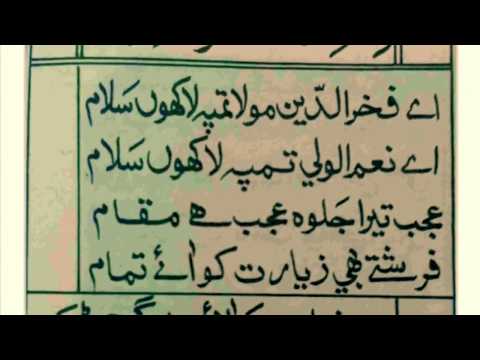 اے فخرالدّين مولا تمپہ لاكھوں سَلام
اے نعم الولي تمپہ لاكھوں سَلام
عجب تيرا جَلوه عجب هے مقام
فرشتے بھي زيارت كو اٰئے تمام